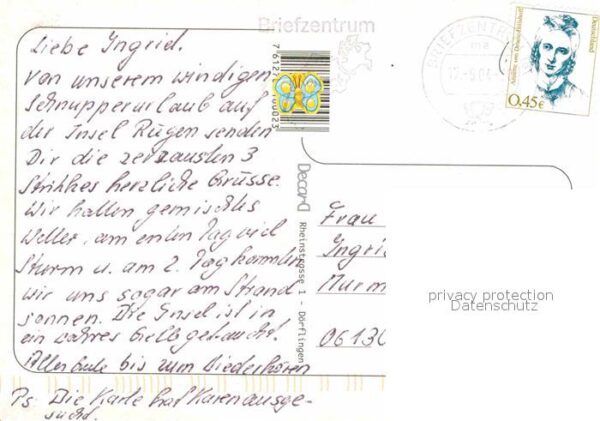 Briefzentrum
Liebe Ingrid.
Von unserem windigen
Schnupperurlaub auf
der Insel Rügen senden
Dir die zerzausten 3
herzliche Grüsse.
Wir hatten gemischtes
Wetter, am ersten Tag viel
Sturm u. am 2. Tag konnten
wir uns sogar am Strand
sonnen. Die Insel ist in
ein wahres Gelb getaucht.
Alles Gute bis zum Wiederhören
Ps. Die Karte hat Karen ausge-
sucht.
Decord
Rheinstrasse 1 - Dörflingen
BRIEFZENTRUM
Deutschland
Annette von Droste-Hülshoff
0.45€
Frau
Ingrid
Murm
privacy protection
Datenschutz
0613